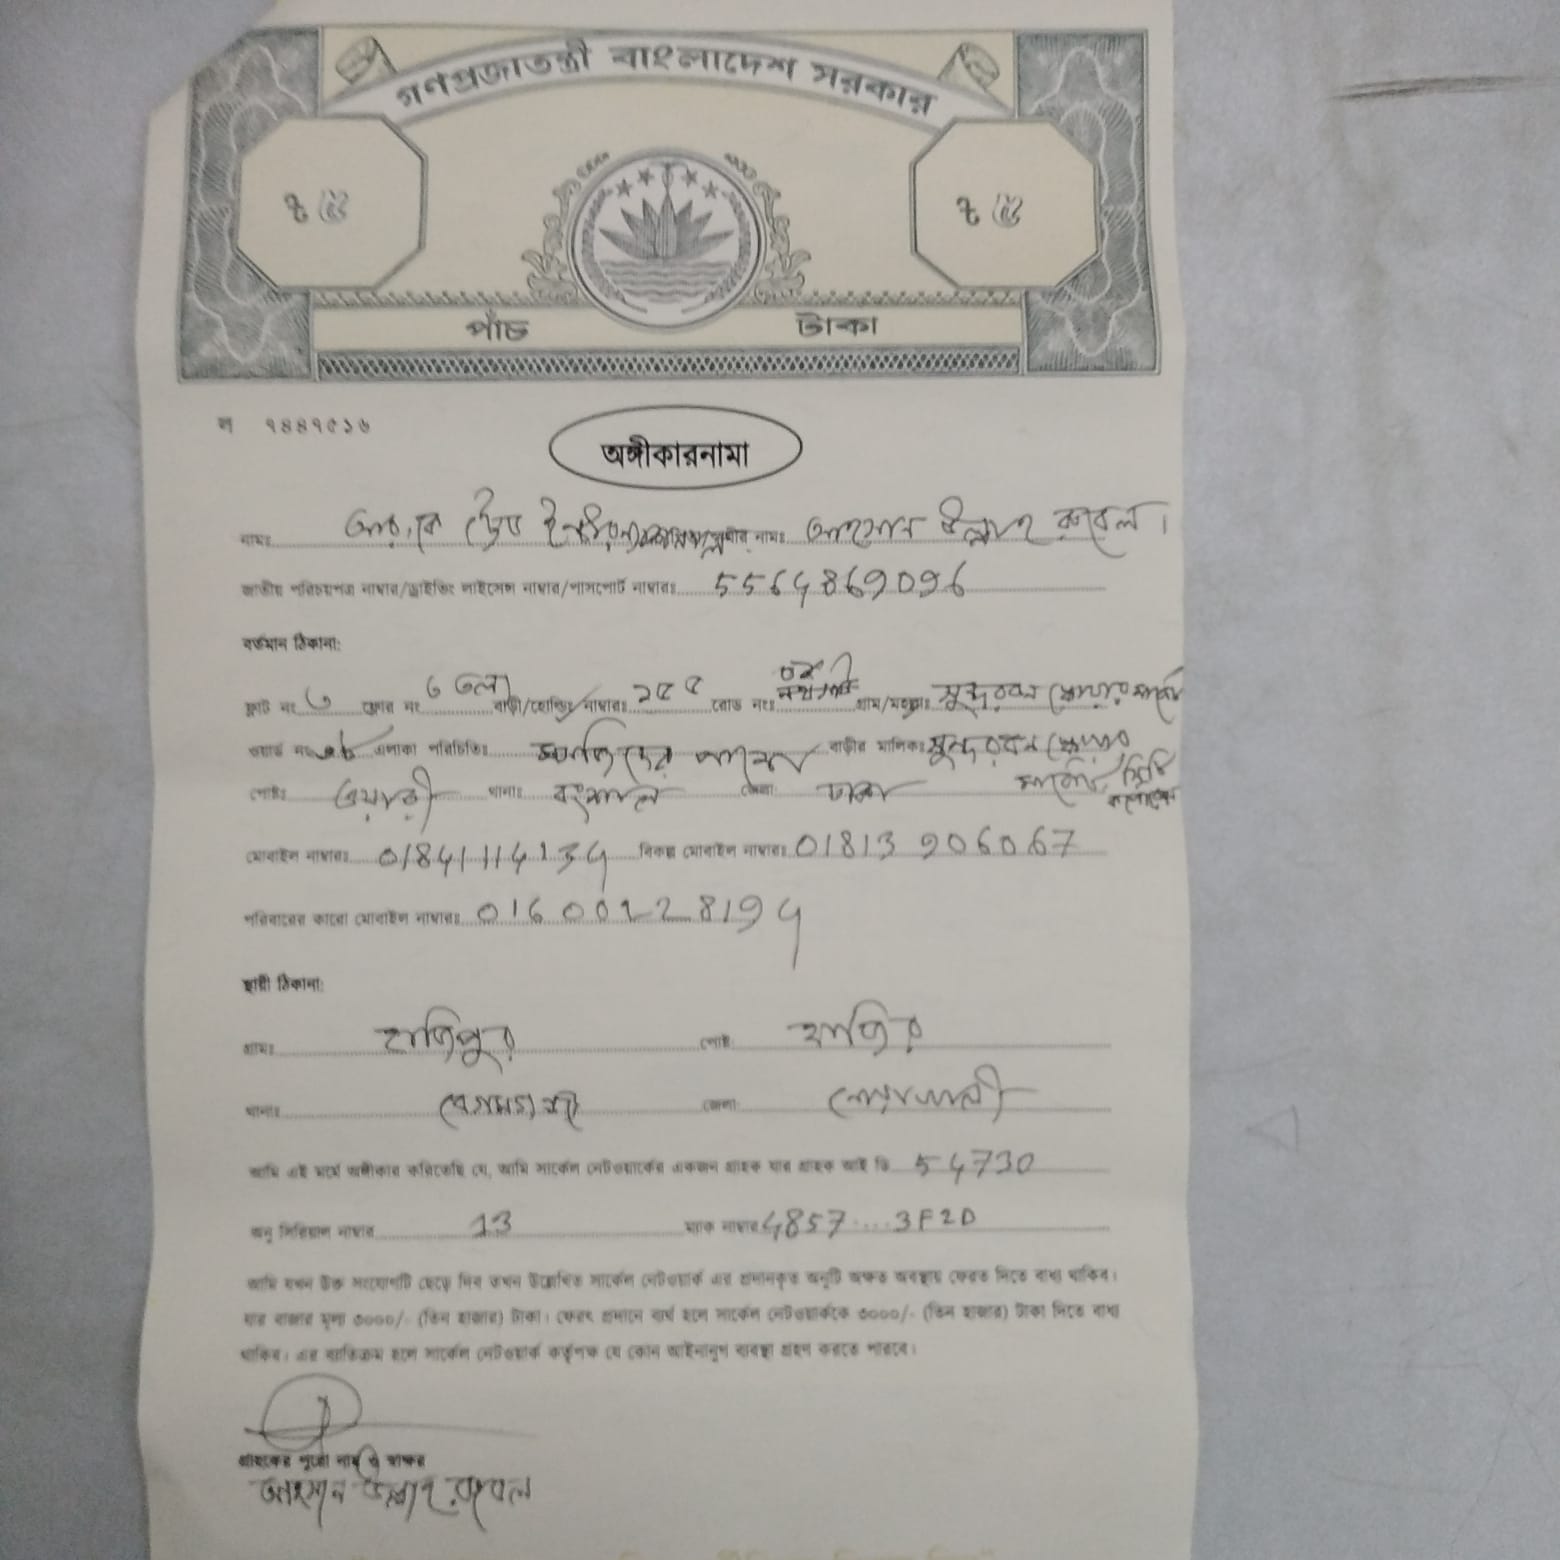 গণপ্রজাতন্ত্রী বাংলাদেশ সরকার
৳ ৫ ৳ ৫
পাঁচ টাকা
ল ৭৪৪৭৫১৬
অঙ্গীকারনামা
নামঃ আর.কে ট্রেড ইন্টারন্যাশনাল নামঃ আহসান উল্লাহ রুবেল।
জাতীয় পরিচয়পত্র নাম্বার/ড্রাইভিং লাইসেন্স নাম্বার/পাসপোর্ট নাম্বারঃ 5564869096
বর্তমান ঠিকানা:
ফ্লাট নং ৩ ফ্লোর নং ৩ তলা বাড়ী/হোল্ডিং নাম্বারঃ ২৫৫ রোড নং গ্রাম/মহল্লাঃ সুন্দরবন স্কোয়ার মার্কেট
ওয়ার্ড নং এলাকা পরিচিতিঃ বাড়ীর মালিকঃ সুন্দরবন স্কোয়ার
পোষ্টঃ ওয়ারী থানাঃ বংশাল জেলা ঢাকা মার্কেট, সিটি
মোবাইল নাম্বারঃ 01841114134 বিকল্প মোবাইল নাম্বারঃ 01813 906067
পরিবারের কারো মোবাইল নাম্বারঃ 01600128194
স্থায়ী ঠিকানা:
গ্রামঃ হাজিপুর পোষ্ট
থানাঃ বেগমগঞ্জ জেলা নোয়াখালী
আমি এই মর্মে অঙ্গীকার করিতেছি যে, আমি সার্কেল নেটওয়ার্কের একজন গ্রাহক যার গ্রাহক আই ডি 54730
অনু সিরিয়াল নাম্বার 13 ম্যাক নাম্বার 4857....3F2D
আমি যখন উক্ত সংযোগটি ছেড়ে দিব তখন উল্লেখিত সার্কেল নেটওয়ার্ক এর প্রদানকৃত অনুটি অক্ষত অবস্থায় ফেরত দিতে বাধ্য থাকিব।
যার বাজার মূল্য ৩০০০/- (তিন হাজার) টাকা। ফেরৎ প্রদানে ব্যর্থ হলে সার্কেল নেটওয়ার্ককে ৩০০০/- (তিন হাজার) টাকা দিতে বাধ্য
থাকিব। এর ব্যতিক্রম হলে সার্কেল নেটওয়ার্ক কর্তৃপক্ষ যে কোন আইনানুগ ব্যবস্থা গ্রহন করতে পারবে।
গ্রাহকের পুরো নাম ও স্বাক্ষর
আহসান উল্লাহ রুবেল